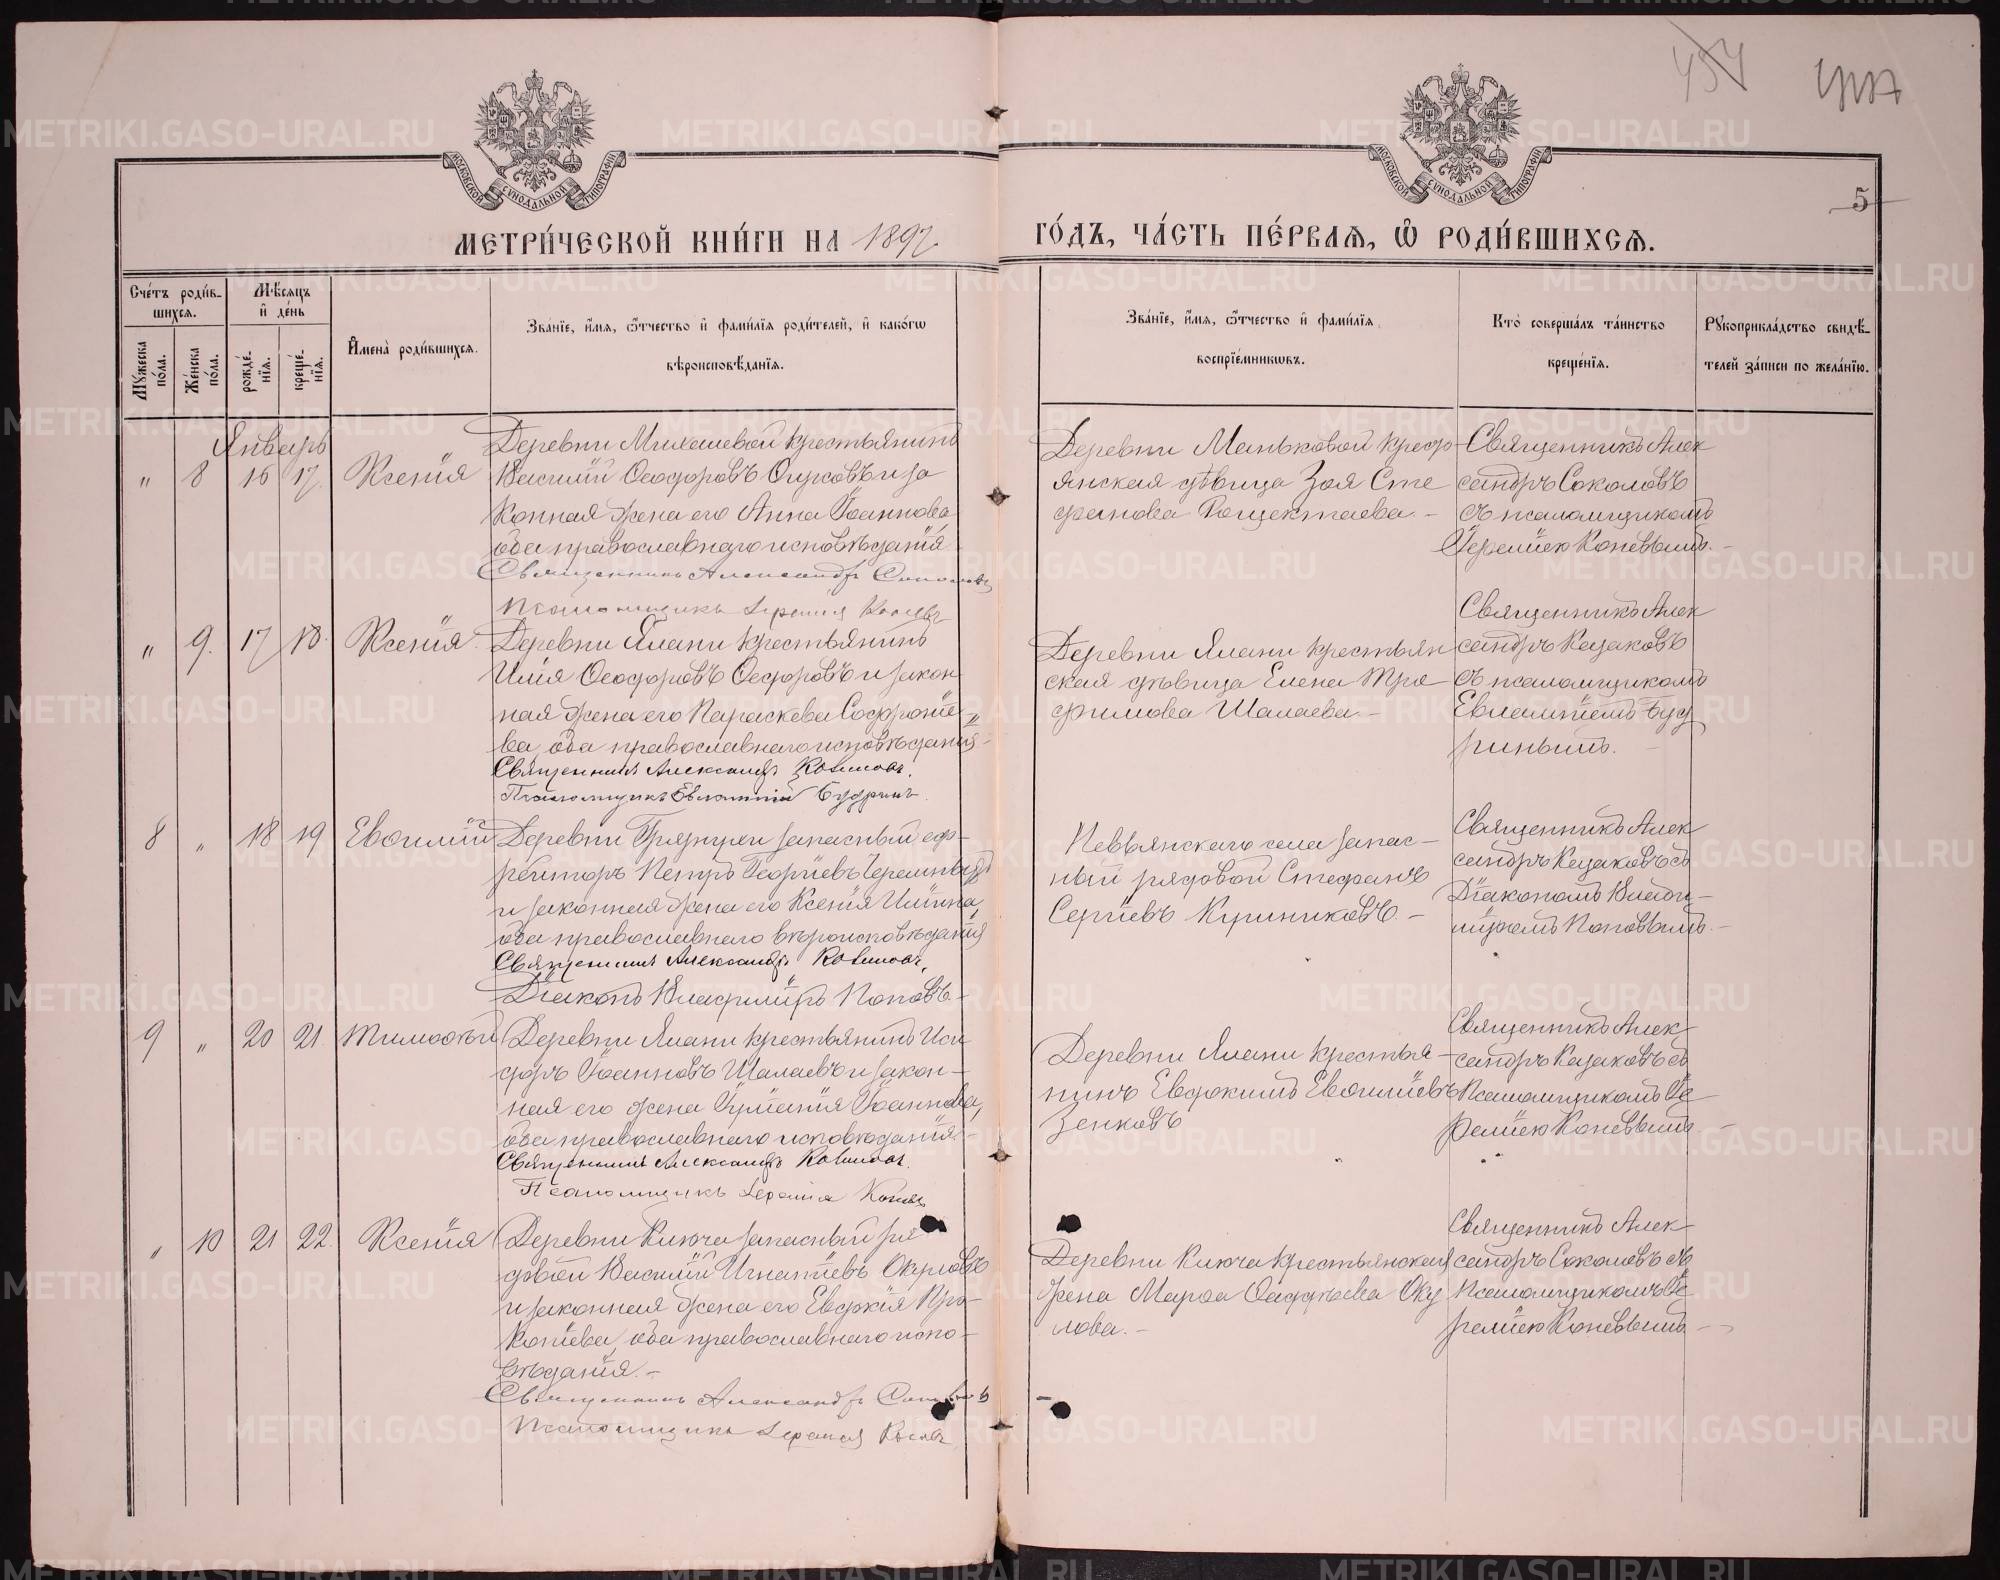 454
МЕТРИ́ЧЕСКОЙ КНИ́ГИ НА 1897
ГО́ДЪ, ЧА́СТЬ ПЕ́РВАѦ, Ѡ҆ РОДИ́ВШИХСѦ.
5
МОСКОВСКОЙ СѴНОДАЛЬНОЙ ТИПОГРАФІИ
МОСКОВСКОЙ СѴНОДАЛЬНОЙ ТИПОГРАФІИ
Сче́тъ роди́в-
шихсѧ.
Мꙋжеска по́ла.
Же́нска по́ла.
Мѣ́сѧцъ
и҆ де́нь
рожде́-
нїѧ.
креще́-
нїѧ.
И҆мена̀ роди́вшихсѧ.
Зва́нїе, и҆́мѧ, ѻ҆́тчество и҆ фами́лїѧ роди́телей, и҆ како́гѡ
вѣроисповѣ́данїѧ.
Зва́нїе, и҆́мѧ, ѻ҆́тчество и҆ фами́лїѧ
воспрїе́мникѡвъ.
Кто̀ соверша́лъ та́инство
креще́нїѧ.
Рꙋкоприкла́дство свидѣ́-
телей за́писи по жела́нїю.
Январь
" 8 16 17 Ксенія
Деревни Михалевой крестьянинъ
Василій Ѳеодоровъ и за
конная жена его Анна Іоаннова
оба православнаго исповѣданія
Священникъ Александръ Соколовъ
Псаломщикъ Іеремія Коневъ
Деревни Маньковой крестья
янская дѣвица Зоя Сте
фанова
Священникъ Алек
сандръ Соколовъ
съ псаломщикомъ
Іереміею Коневымъ.
" 9. 17 18. Ксенія
Деревни Ялани крестьянинъ
Илія Ѳеодоровъ Ѳедоровъ и закон-
ная жена его Параскева Софроніе-
ва, оба православнаго исповѣданія
Священникъ Александръ Казаковъ.
Псаломщикъ Евлампій Будринъ.
Деревни Ялани крестьян
ская дѣвица Елена Тро
фимова Шалаева. –
Священникъ Алек
сандръ Казаковъ
съ псаломщикомъ
Евлампіемъ Буд
ринымъ. –
8 " 18 19 Евѳимій
Деревни Грязнухи запасный еф-
рейторъ Петръ Георгіевъ Черемныхъ
и законная жена его Ксенія Иліина,
оба православнаго вѣроисповѣданія
Священникъ Александръ Казаковъ,
Діаконъ Владиміръ Поповъ –
Невьянскаго села запас-
ный рядовой Стефанъ
Сергіевъ Куриниковъ. –
Священникъ Алек
сандръ Казаковъ съ
Діакономъ Влади-
міромъ Поповымъ. –
9 " 20 21. Тимоѳей
Деревни Ялани крестьянинъ Иси
доръ Іоанновъ Шалаевъ и закон-
ная его жена Іуліанія Іоаннова,
оба православнаго исповѣданія –
Священникъ Александръ Казаковъ.
Псаломщикъ Іеремія Коневъ
Деревни Ялани крестья-
нинъ Евдокимъ Евѳиміевъ
Зенковъ
Священникъ Алек-
сандръ Казаковъ съ
Псаломщикомъ Іе-
реміею Коневымъ. –
" 10 21 22. Ксенія
Деревни Ключа запасный ря
довой Василій Игнатіевъ Окуловъ
и законная жена его Евдокія Про-
копіева, оба православнаго испо-
вѣданія. –
Священникъ Александръ Соколовъ
Псаломщикъ Іеремія Коневъ
Деревни Ключа крестьянская
жена Марѳа Ѳаддѣева Оку
лова. –
Священникъ Алек-
сандръ Соколовъ съ
Псаломщикомъ Іе
реміею Коневымъ –
METRIKI.GASO-URAL.RU